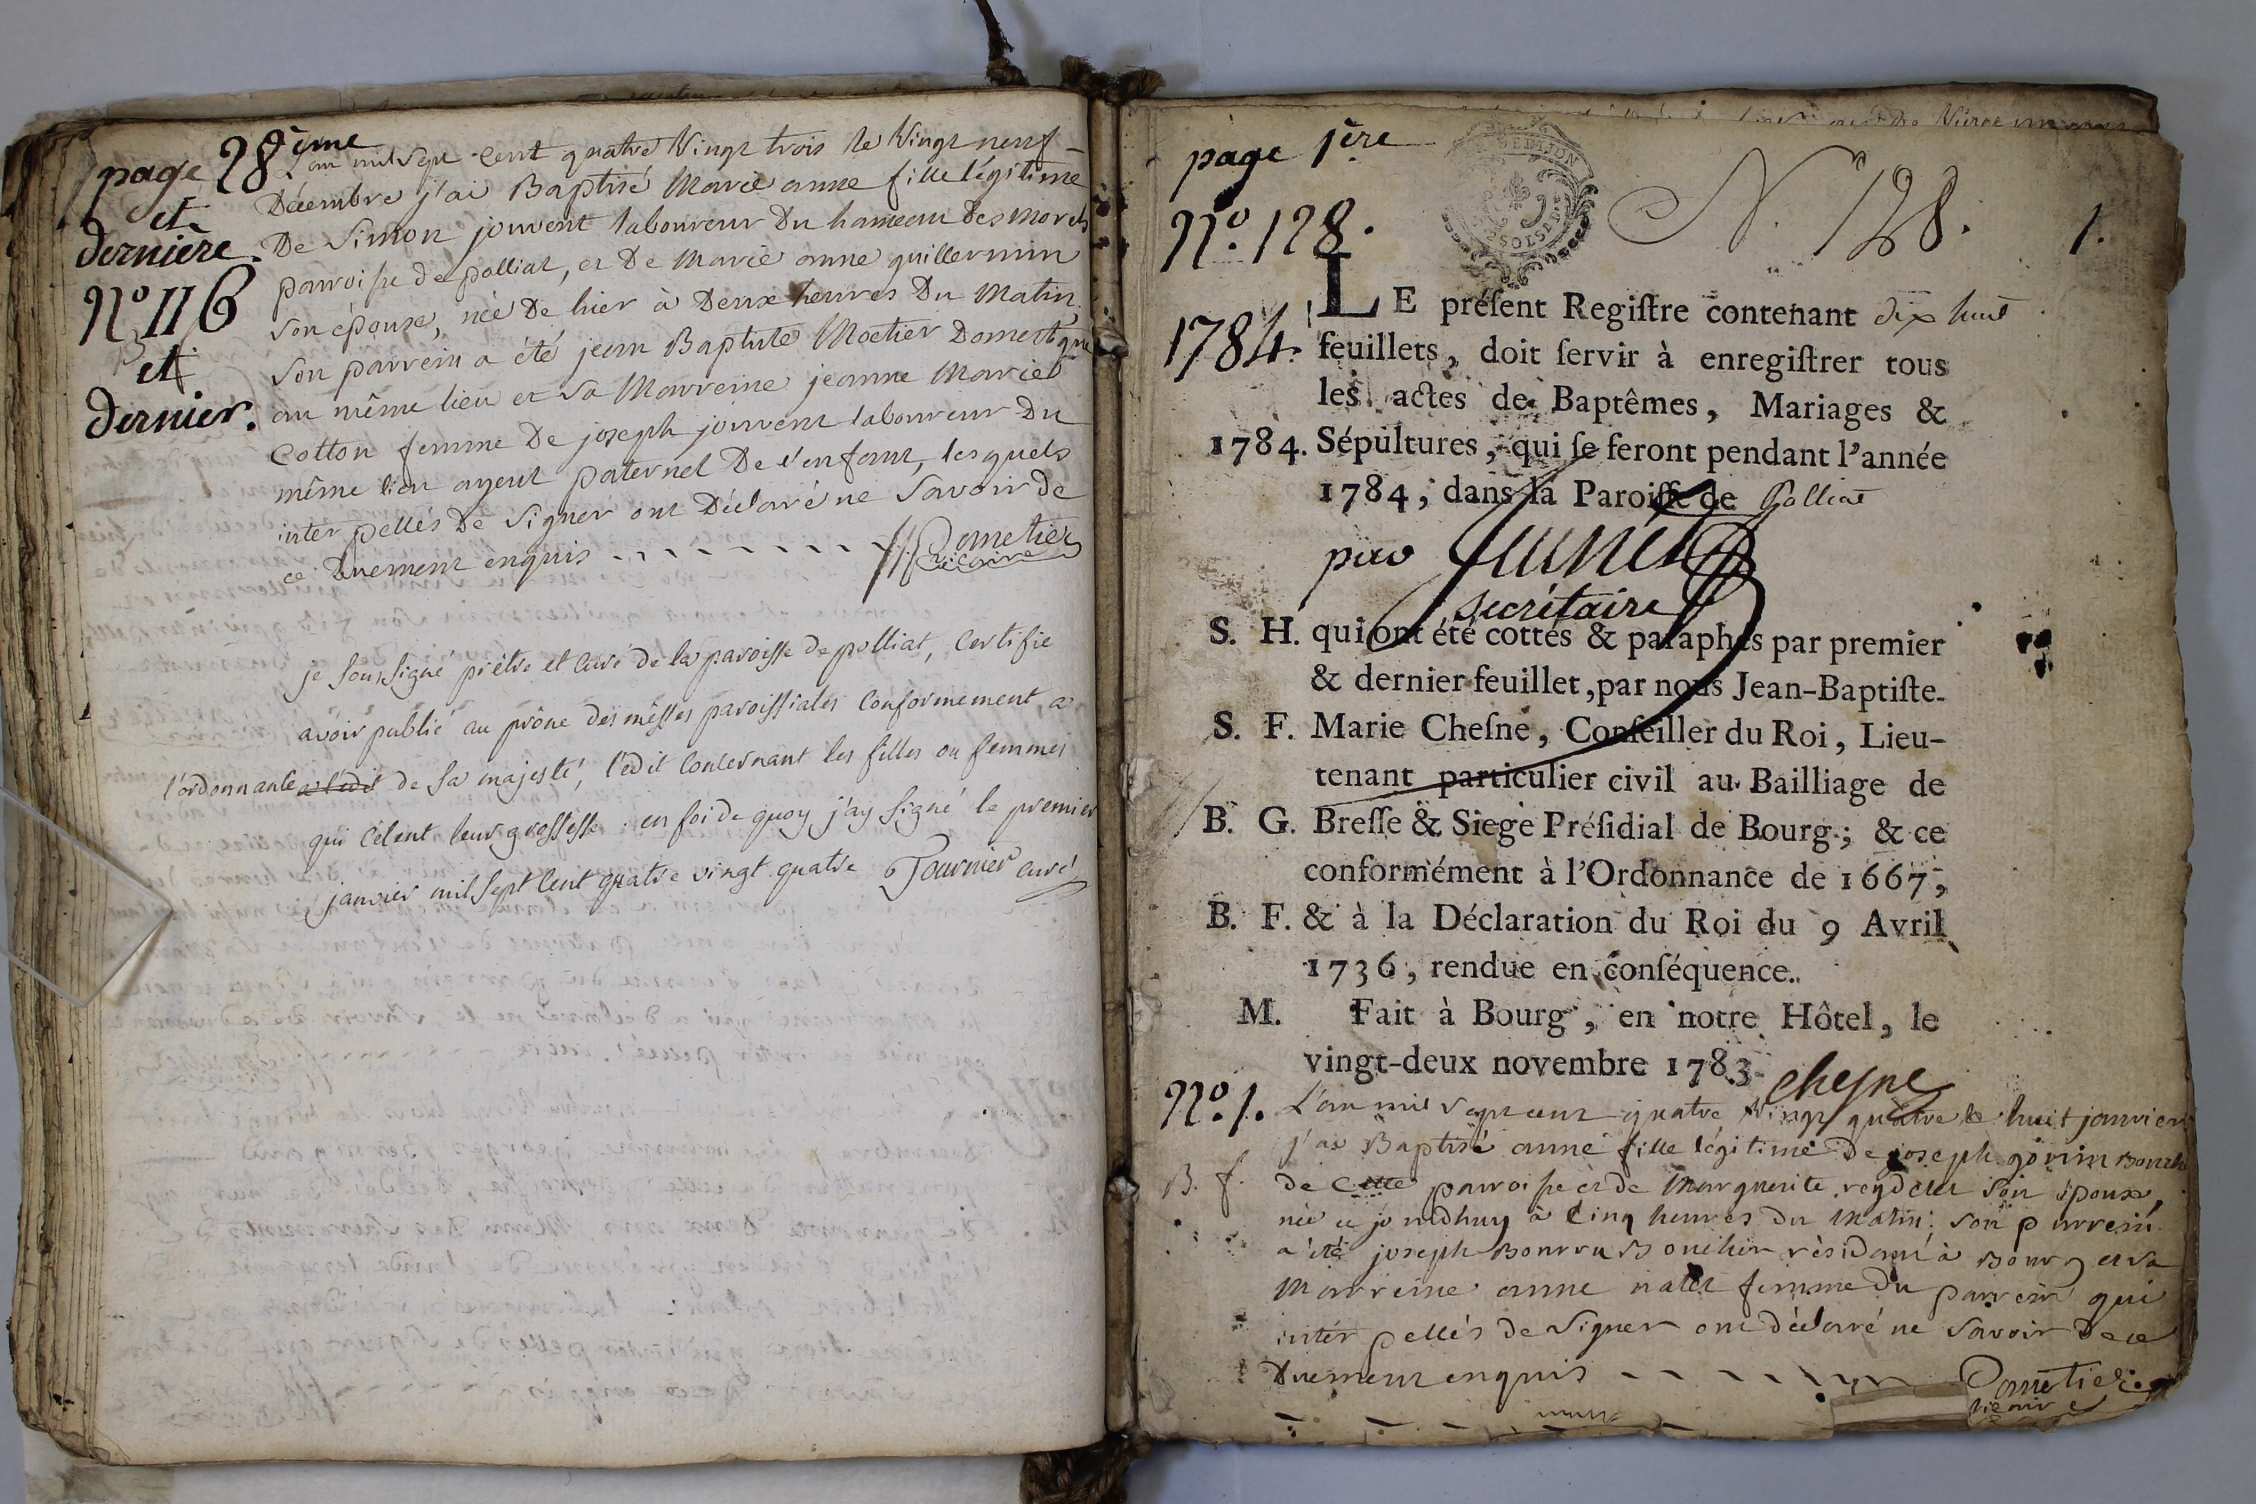 page 28ème
et
dernière.
No 116
et
dernier.
L'an mil sept cent quatre vingt trois le vingt neuf
Décembre j'ai Baptisé Marie anne fille légitime
De Simon jouvent laboureur Du hameau Des morels
parroisse de polliat, et De Marie anne guillermin
son épouse, née De hier à Deux heures Du Matin,
son parrein a été jean Baptiste Moetier Domestique
au même lieu et sa Marreine jeanne Marie
Cotton femme De joseph jouvent laboureur Du
même lieu ayeul paternel De l'enfant, lesquels
interpellés De signer ont Déclaré ne Savoir De
ce Duement enquis Pometier
vicaire
je soussigné prêtre et curé de la paroisse de polliat, certifie
avoir publié au prône des messes paroissiales conformement a
l'ordonnance et l'edit de sa majesté, l'edit concernant les filles ou femmes
qui célent leur grossesse. en foi de quoy j'ay signé le premier
janvier mil sept cent quatre vingt quatre Tournier curé
page 1ère
No. 128.
N. 128.
1.
1784.
LE préſent Regiſtre contenant dix huit
feuillets, doit ſervir à enregiſtrer tous
les actes de Baptêmes, Mariages &
1784. Sépultures, qui ſe feront pendant l'année
1784, dans la Paroiſſe de Polliat
par
secrétaire
S. H. qui ont été cottés & paraphés par premier
& dernier feuillet, par nous Jean-Baptiſte-
S. F. Marie Cheſne, Conſeiller du Roi, Lieu-
tenant particulier civil au Bailliage de
B. G. Breſſe & Siege Préſidial de Bourg; & ce
conformément à l'Ordonnance de 1667,
B. F. & à la Déclaration du Roi du 9 Avril
1736, rendue en conſéquence.
M. Fait à Bourg, en notre Hôtel, le
vingt-deux novembre 1783
chesne
No. 1. L'an mil sept cent quatre vingt quatre le huit janvier
j'ai Baptisé anne fille légitime De joseph
B. f. de cette parroisse et de Marguerite son épouse,
née ce jourdhuy à cinq heures du Matin: son parrein
a été joseph résidant à Bourg et sa
Marreine anne femme Du parrein qui
interpellés de signer ont déclaré ne savoir De ce
Duement enquis Pometier
vicaire